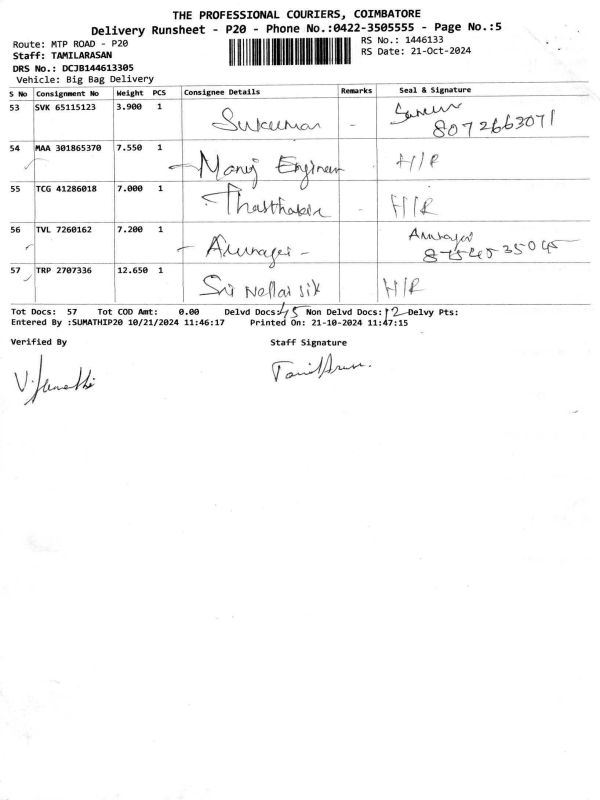 THE PROFESSIONAL COURIERS, COIMBATORE
Delivery Runsheet - P20 - Phone No.:0422-3505555 - Page No.:5
Route: MTP ROAD - P20
RS No.: 1446133
Staff: TAMILARASAN
RS Date: 21-Oct-2024
DRS No.: DCJB144613305
Vehicle: Big Bag Delivery
S No Consignment No Weight PCS Consignee Details Remarks Seal & Signature
53 SVK 65115123 3.900 1 Sukumar - 8072663071
54 MAA 301865370 7.550 1 Manoj Engineer H/R
55 TCG 41286018 7.000 1 - H/R
56 TVL 7260162 7.200 1
57 TRP 2707336 12.650 1 Sri Nellai H/R
Tot Docs: 57 Tot COD Amt: 0.00 Delvd Docs: 45 Non Delvd Docs: 12 Delvy Pts:
Entered By :SUMATHIP20 10/21/2024 11:46:17 Printed On: 21-10-2024 11:47:15
Verified By Staff Signature